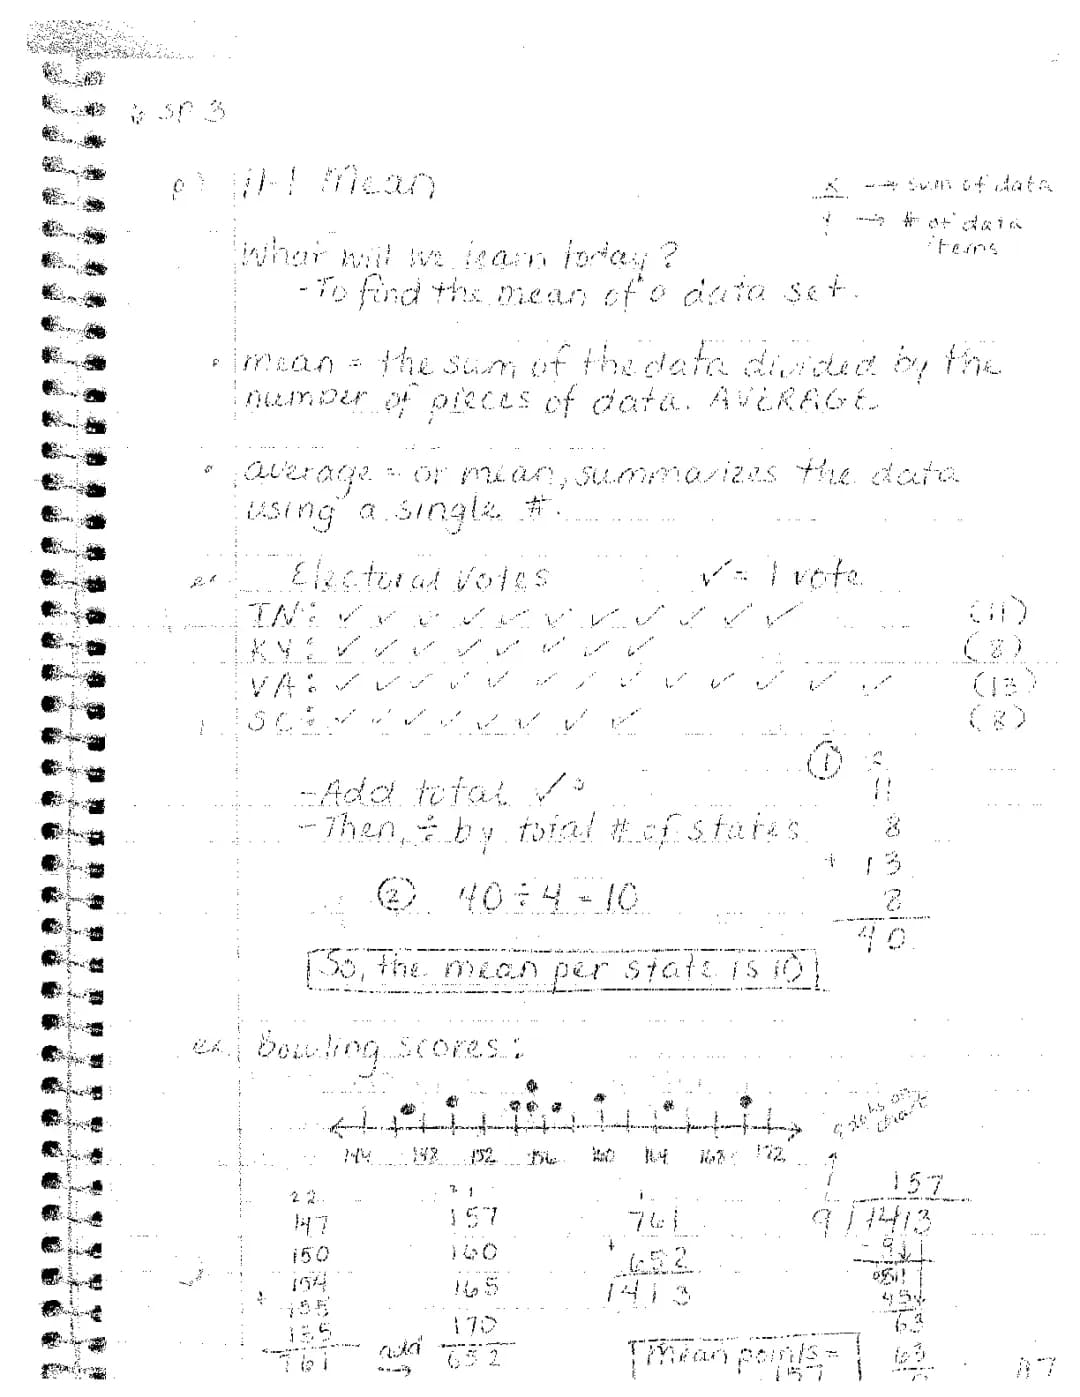 6 SP 3
11-1 Mean
x → sum of data
y → # of data items
What will we learn today?
- To find the mean of a data set.
• mean = the sum of the data divided by the
number of pieces of data. AVERAGE
• average = or mean, summarizes the data
using a single #.
ex. Electoral Votes ✓ = 1 vote
IN: ✓ ✓ ✓ ✓ ✓ ✓ ✓ ✓ ✓ ✓ ✓ (11)
KY: ✓ ✓ ✓ ✓ ✓ ✓ ✓ ✓ (8)
VA: ✓ ✓ ✓ ✓ ✓ ✓ ✓ ✓ ✓ ✓ ✓ ✓ ✓ (13)
SC: ✓ ✓ ✓ ✓ ✓ ✓ ✓ ✓ (8)
- Add total ✓s
- Then, ÷ by total # of states
① 2
11
8
+ 13
8
40
② 40 ÷ 4 = 10
So, the mean per state is 10
ex. Bowling scores:
144 148 152 156 160 164 168 172
9 dots on chart
2 2
147
150
154
+ 155
155
761
add →
2 1
157
160
165
170
652
1
761
+ 652
1413
157
9 1413
- 9
051
45
63
63
0
Mean points =
157
A7